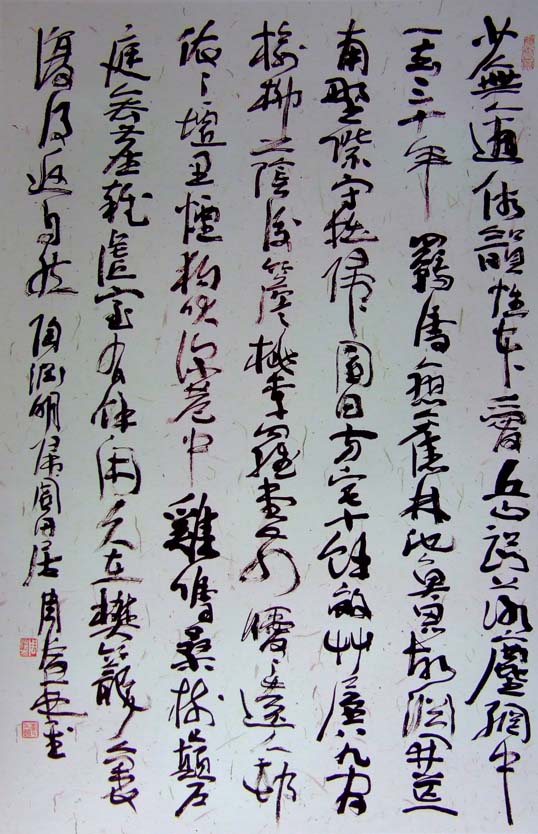 少無適俗韻性本愛丘山誤落塵網中
一去三十年羈鳥戀舊林池魚思故淵開荒
南野際守拙歸園田方宅十餘畝草八九間
榆柳蔭後簷桃李羅堂前曖〻遠人邨
依〻墟里煙狗吠深巷中雞鳴桑樹顛戶
庭無塵雜虛室有餘閑久在樊籠裏
復得返自然陶淵明歸園田居周